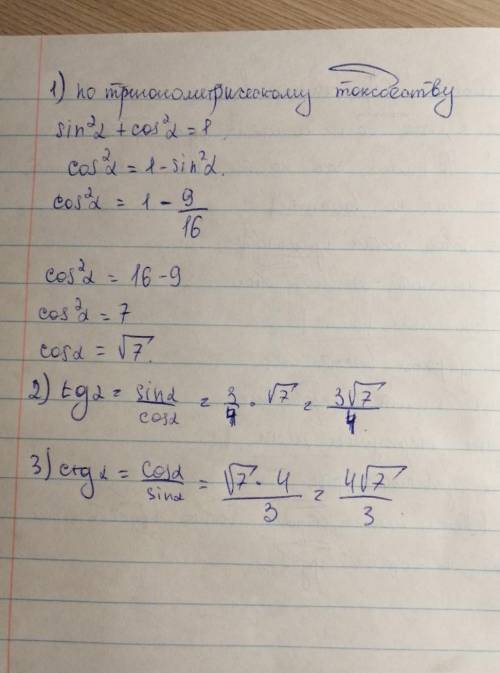 1) по тригонометрическому тождеству
sin²α + cos²α = 1.
cos²α = 1 - sin²α.
cos²α = 1 - 9/16
cos²α = 16 - 9
cos²α = 7
cosα = √7.
2) tgα = sinα/cosα = 3/4 · √7 = 3√7/4.
3) ctgα = cosα/sinα = √7 · 4/3 = 4√7/3